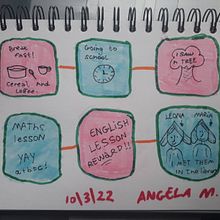 Break
fast!
Cereal and
Coffee.
Going to
school
I SAW
A TREE
Maths
lesson
YAY
ENGLISH
LESSON
REWARD!!
LEONA MARIA
I MET THEM
IN the library
10/3/22 ANGELA M.